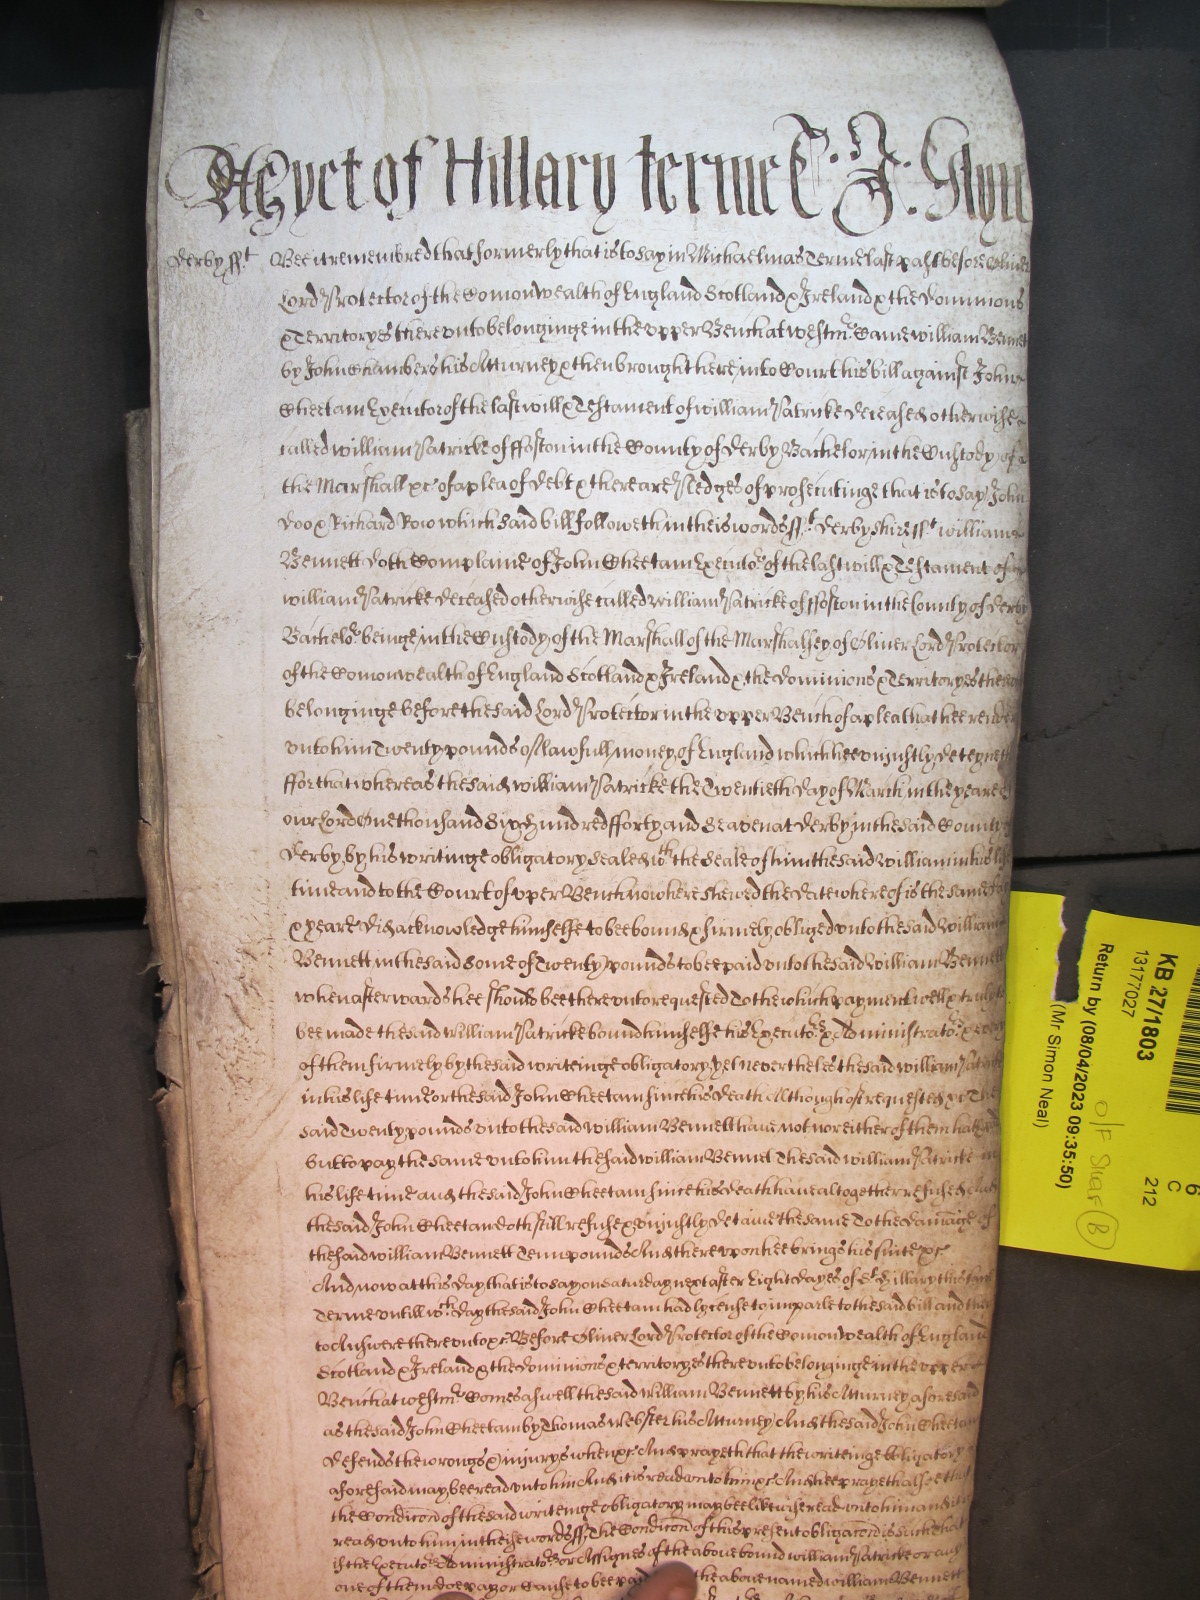 As yet of Hillary terme
Derby ss Bee it remembred that formerly that is to say in Michaelmas Terme last past before Oliver
Lord Protector of the Comonwealth of England Scotland & Ireland & the Dominions
& Territoryes thereunto belonginge in the upper Bench at Westmr Came William Bennet
by John Chambers his Atturney & then brought here into Court his bill against John
Cheetam Executor of the last will & Testament of William Patricke deceased otherwise
called William Patricke of ffoston in the County of Derby Bachelor in the Custody of
the Marshall &c of a plea of Debt & there are Pledges of prosecutinge that is to say John
Doo & Richard Roo which said bill followeth in theis words ss Derbyshire ss William
Bennett doth Complaine of John Cheetam Executor of the last will & Testament of
William Patricke deceased otherwise called William Patricke of ffoston in the County of Derby
Bachelr beinge in the Custody of the Marshall of the Marshalsey of Oliver Lord Protector
of the Comonwealth of England Scotland & Ireland & the Dominions & Territoryes there
belonginge before the said Lord Protector in the upper Bench of a plea that hee render
unto him Twenty pounds of lawfull money of England which hee unjustly deteyneth
ffor that whereas the said William Patricke the Twentieth day of March in the yeare
our Lord One thousand Six hundred fforty and Seaven at Derby in the said County
Derby by his writinge obligatory sealed wth the seale of him the said William in his life
time and to the Court of upper Bench now here shewed the date whereof is the same
& yeare did acknowledge himselfe to bee bound & firmely obliged unto the said William
Bennett in the said some of Twenty pounds to bee paid unto the said William Bennett
when afterwards hee should bee thereunto requested To the which payment well & truly
bee made the said William Patricke bound himselfe his Executors & Administrators & every
of them firmely by the said writeinge obligatory yet nevertheles the said William Patricke
in his life time or the said John Cheetam since his death Although oft requested &c The
said Twenty pounds unto the said William Bennett have not nor either of them hath
but to pay the same unto him the said William Bennet The said William Patricke in
his life time and the said John Cheetam since his death have altogether refused And
the said John Cheetam doth still refuse & unjustly detaine the same To the damage of
the said William Bennett Tenn pounds And thereupon hee brings his suite &c
And now at this day that is to say on Saturday next after Eight dayes of St Hillary this same
Terme untill wch day the said John Cheetam had lycense to imparle to the said bill and then
to Answere thereunto &c Before Oliver Lord Protector of the Comonwealth of England
Scotland & Ireland & the Dominions & territoryes thereunto belonginge in the upper
Bench at Westmr Comes aswell the said William Bennett by his Atturney aforesaid
as the said John Cheetam by Thomas Webster his Atturney And the said John Cheetam
defends the wrongs & injurys when &c And prayeth that the writeinge obligatory
aforesaid may bee read unto him And it is read unto him &c And hee prayeth alsoe that
the Condicon of the said writeinge obligatory may bee likewise read unto him and it is
read unto him in theise words ss The Condicon of this present obligacon is such that
if the Executors Administrators or Assignes of the above bound William Patricke or any
one of them doe pay or Cause to bee paid the above named William Bennett
KB 27/1803
13177027
Return by (08/04/2023 09:35:50)
(Mr Simon Neal)
6
C
212
O/F Shelf B